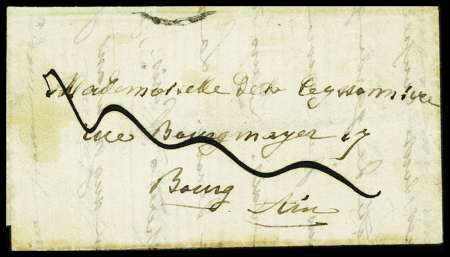 Mademoiselle de la Teyssonnière
rue Bourgmayer 17
Bourg
Ain